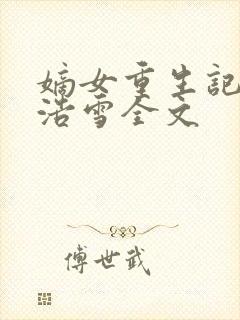 嫡女重生記
浩雪全文
傅世武